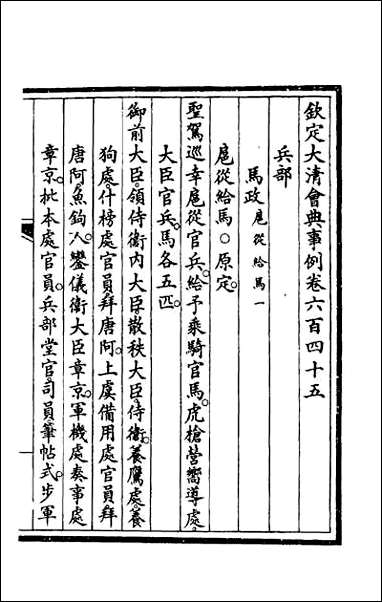 欽定大清會典事例卷六百四十五
兵部
馬政扈從給馬一
扈從給馬○原定。
聖駕巡幸扈從官兵。給予乘騎官馬。虎槍營嚮導處。
大臣官兵。馬各五匹。
御前大臣。領侍衛內大臣。散秩大臣。侍衛。養鷹處。養
狗處。什榜處官員拜唐阿。上虞備用處官員拜
唐阿。魚鉤人。鑾儀衛大臣章京。軍機處奏事處
章京。批本處官員。兵部堂官。司員筆帖式步軍